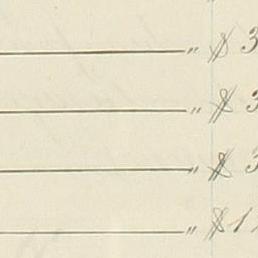 " $ 3
" $ 3
" $ 3
" $ 1